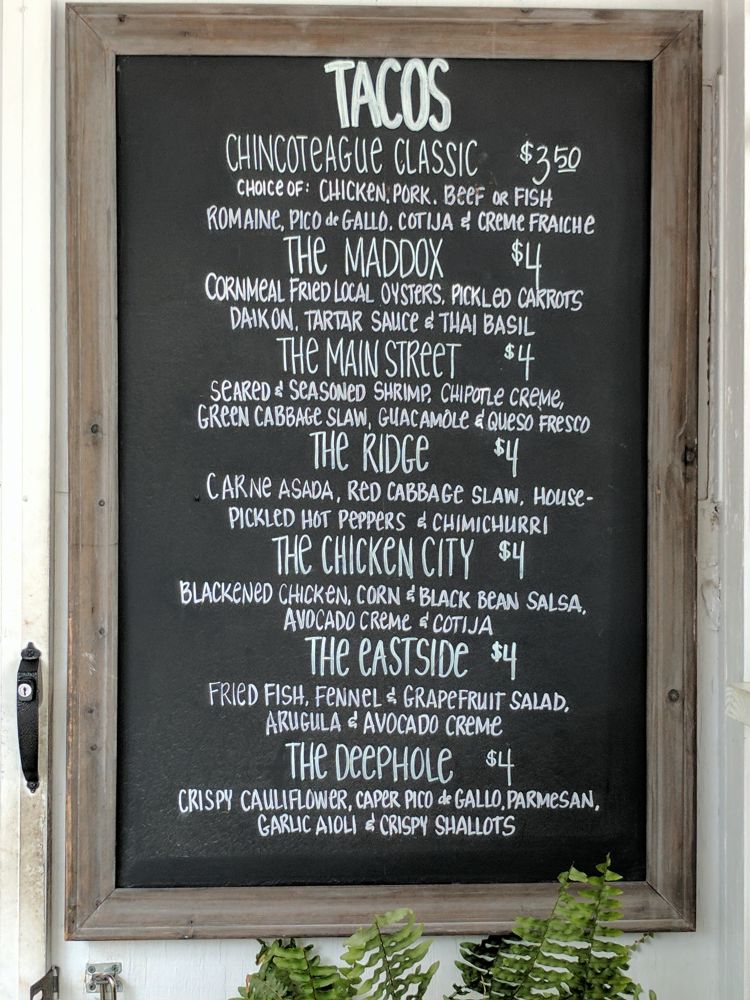 TACOS
CHINCOTEAGUE CLASSIC $3.50
CHOICE OF: CHICKEN, PORK, BEEF OR FISH
ROMAINE, PICO de GALLO, COTIJA & CREME FRAICHE
THE MADDOX $4
CORNMEAL FRIED LOCAL OYSTERS, PICKLED CARROTS
DAIKON, TARTAR SAUCE & THAI BASIL
THE MAIN STREET $4
SEARED & SEASONED SHRIMP, CHIPOTLE CREME,
GREEN CABBAGE SLAW, GUACAMOLE & QUESO FRESCO
THE RIDGE $4
CARNE ASADA, RED CABBAGE SLAW, HOUSE-
PICKLED HOT PEPPERS & CHIMICHURRI
THE CHICKEN CITY $4
BLACKENED CHICKEN, CORN & BLACK BEAN SALSA,
AVOCADO CREME & COTIJA
THE EASTSIDE $4
FRIED FISH, FENNEL & GRAPEFRUIT SALAD,
ARUGULA & AVOCADO CREME
THE DEEPHOLE $4
CRISPY CAULIFLOWER, CAPER PICO de GALLO, PARMESAN,
GARLIC AIOLI & CRISPY SHALLOTS